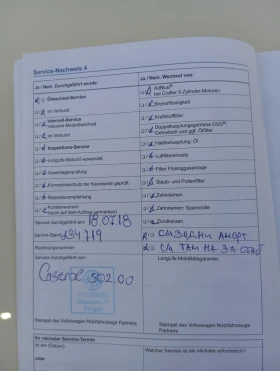 Service-Nachweis 4
Ja / Nein. Durchgeführt wurde:
Ölwechsel-Service
im Verbund
Intervall-Service
inklusive Motorölwechsel
im Verbund
Inspektions-Service
LongLife Motoröl verwendet
Gasanlagenprüfung
Formulareschutz der Karosserie geprüft
Reparaturempfehlung
Kundenwunsch
(auch auf dem Auftrag vermerken)
Service durchgeführt am: 18.07.18
bei km-Stand: 234719
Rechnungsnummer:
Stempel des Volkswagen Nutzfahrzeuge
Partners
Ja / Nein. Wechsel von:
AdBlue®
bei Crafter 5-Zylinder-Motoren
Bremsflüssigkeit
Kraftstofffilter
Doppelkupplungsgetriebe DSG®:
Getriebeöl und ggf. Ölfilter
Haldexkupplung: Öl
Luftfiltereinsatz
Filter Flüssiggasanlage
Staub- und Pollenfilter
Zahnriemen
Zahnriemen: Spannrolle
Zündkerzen
LongLife Mobilitätsgarantie:
Stempel des Volkswagen Nutzfahrzeuge
Partners
Ihr nächster Service-Termin
ist am (Datum):
oder
Welcher Service ist als nächster erforderlich?